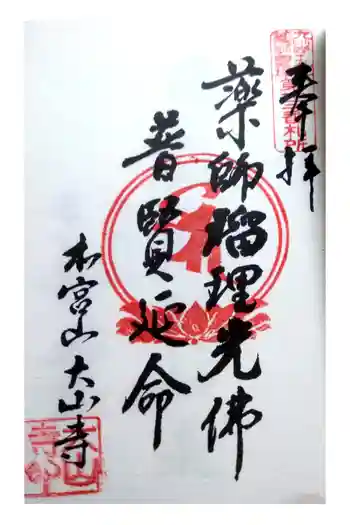 奉拝
薬師瑠理光佛
普賢延命
本宮山大山寺